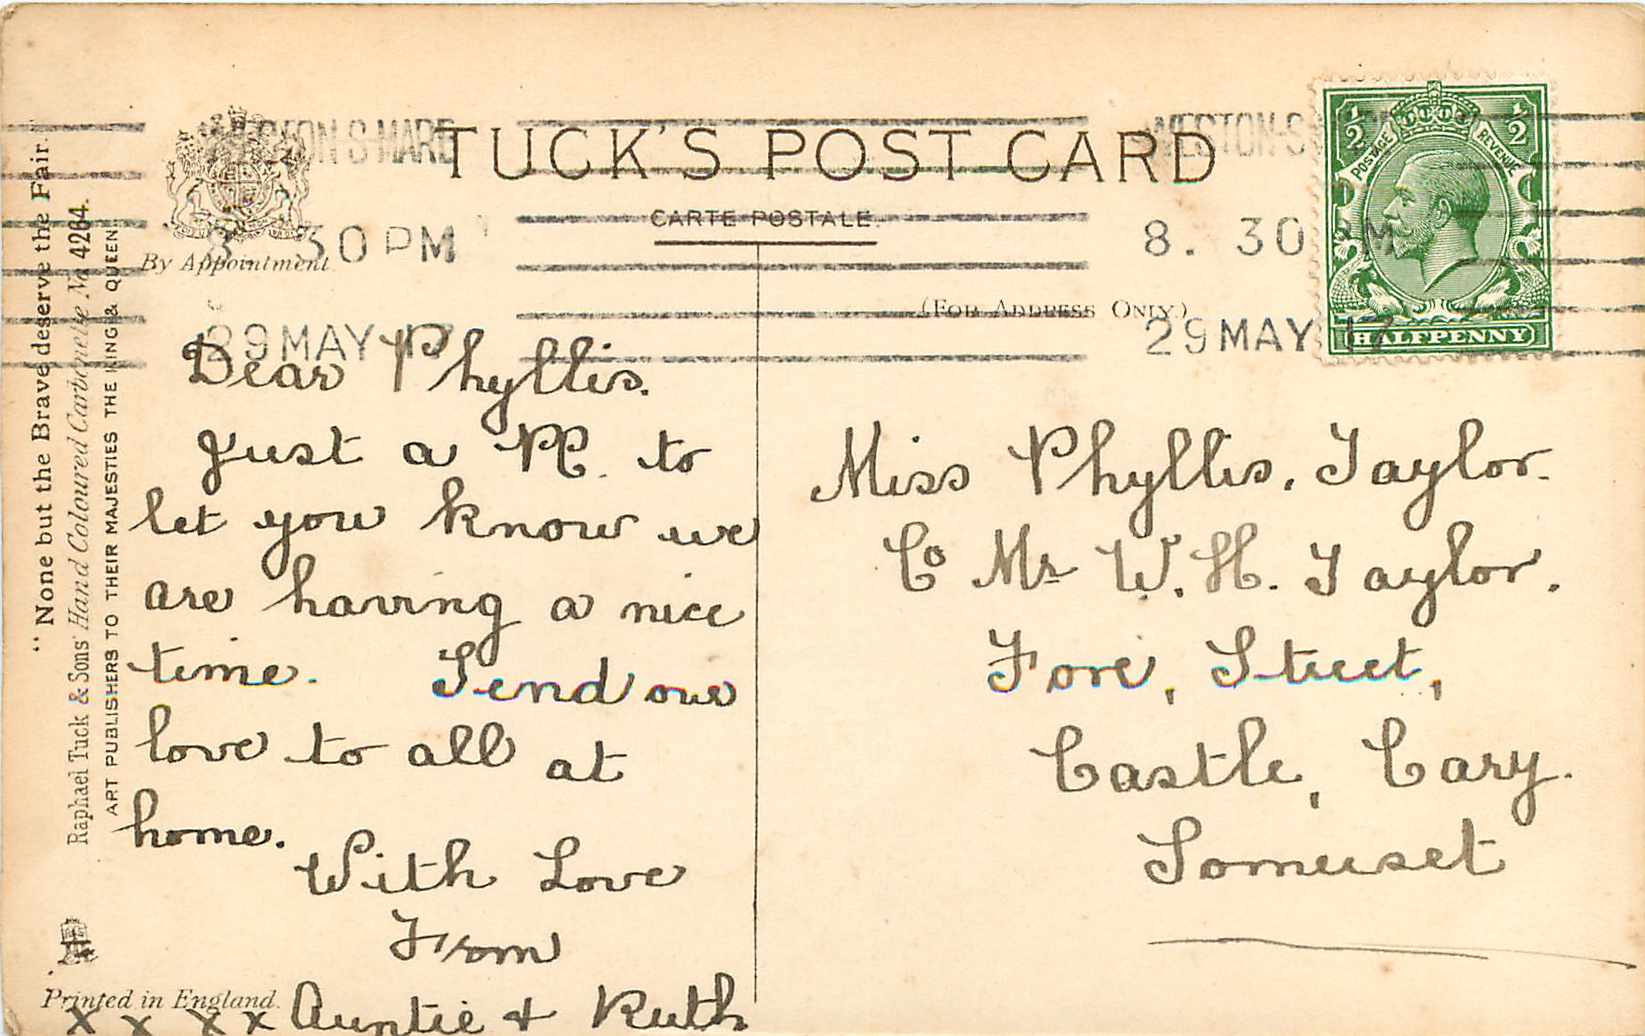 TUCK'S POST CARD
CARTE POSTALE.
(FOR ADDRESS ONLY)
By Appointment
WESTON-S-MARE
8. 30 PM
29 MAY 17
WESTON-S
8. 30 PM
29 MAY 17
½ ½
POSTAGE REVENUE
HALFPENNY
"None but the Brave deserve the Fair."
Raphael Tuck & Sons' Hand Coloured Carbonette No 4264.
ART PUBLISHERS TO THEIR MAJESTIES THE KING & QUEEN.
Dear Phyllis.
Just a PC. to
let you know we
are having a nice
time. Send our
love to all at
home.
With Love
From
x x x x Auntie + Ruth
Printed in England.
Miss Phyllis. Taylor.
Co Mr W. H. Taylor.
Fore, Street,
Castle, Cary.
Somerset